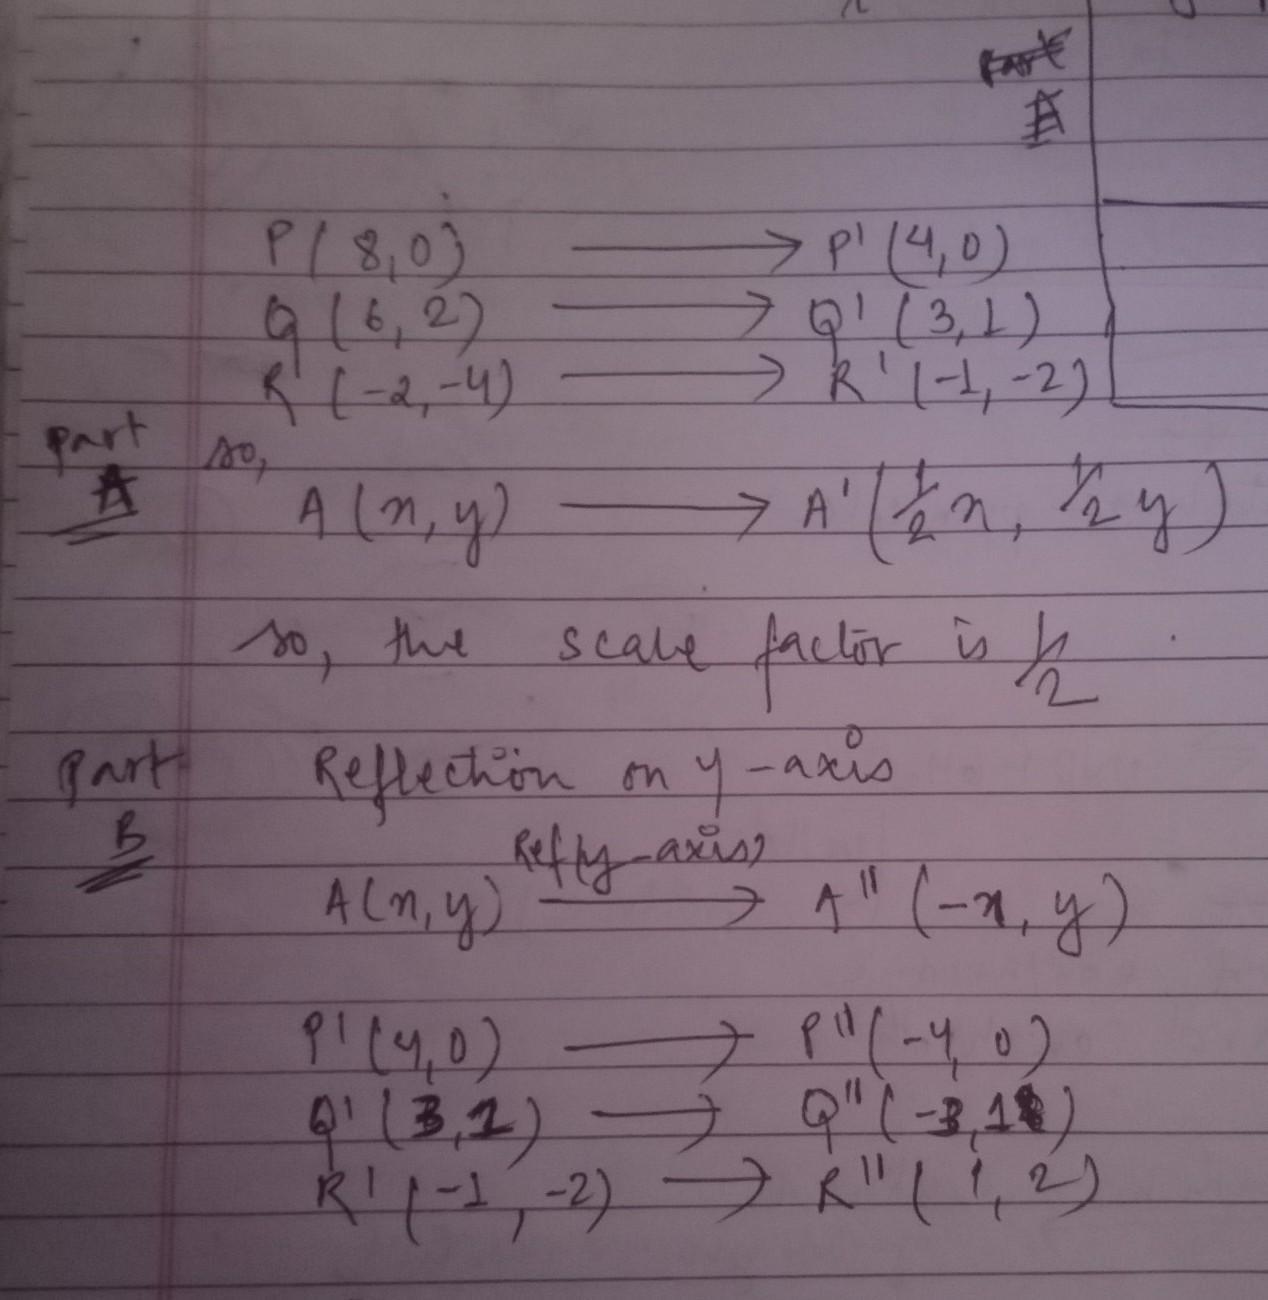 Part
A
P(8,0) → P'(4,0)
Q(6,2) → Q'(3,1)
R(-2,-4) → R'(-1,-2)
Part so,
A A(x,y) → A'(1/2 x, 1/2 y)
so, the scale factor is 1/2
Part Reflection on y-axis
B Ref(y-axis)
A(x,y) → A"(-x, y)
P'(4,0) → P"(-4, 0)
Q'(3,1) → Q"(-3,1)
R'(-1,-2) → R"(1,2)